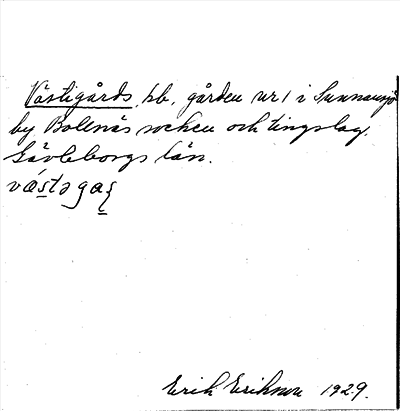 Västigårds, hb, gården nr 1 i Sunnansjö
by Bollnäs socken och tingslag,
Gävleborgs län.
västəga
Erik Eriksson 1929.